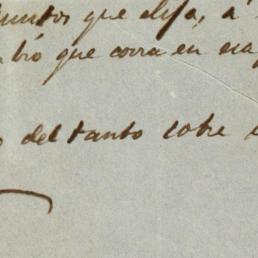 puntos que elija, á
bió que corra en na
del tanto sobre